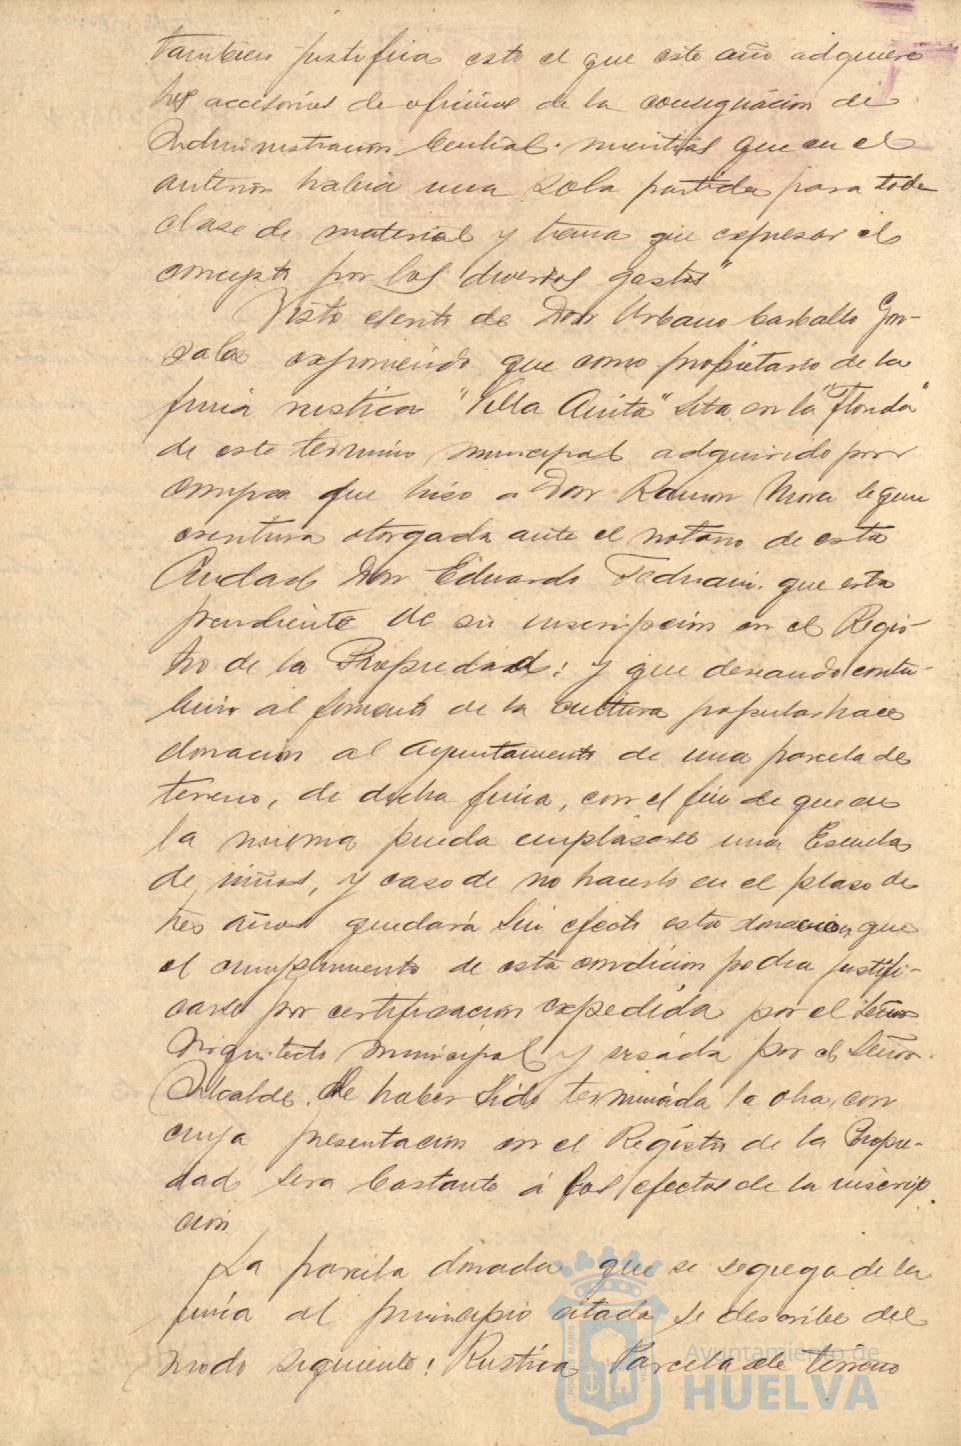 tambien justifica esto el que este año adquiere
los accesorios de oficinas de la consignación de
Administracion Central mientras que en el
anterior habia una sola partida para toda
clase de material y tenia que expresar el
concepto por los diversos gastos"
Visto escrito de Don Urbano Carballo Gon-
zalez exponiendo que como propietario de la
finca rustica "Villa Anita" sita en la "Florida"
de este termino municipal adquirido por
compra que hizo a Don Ramon Mora segun
escritura otorgada ante el notario de esta
Ciudad Don Eduardo Fedriani. que esta
pendiente de su inscripcion en el Regis-
tro de la Propiedad: y que deseando contri-
buir al fomento de la cultura popular hace
donacion al Ayuntamiento de una parcela de
terreno, de dicha finca, con el fin de que en
la misma pueda emplazarse una Escuela
de niños, y caso de no hacerlo en el plazo de
tres años quedará sin efecto esta donacion, que
el cumplimiento de esta condicion podra justifi-
carse por certificacion expedida por el Señor
Arquitecto municipal y visada por el Señor
Alcalde. de haber sido terminada la obra, con
cuya presentacion en el Registro de la Propie-
dad sera bastante á los efectos de la inscrip
cion
La parcela donada que se segrega de la
finca al principio citada se describe del
modo siguiente: Rustica Parcela de terreno
Ayuntamiento de
HUELVA